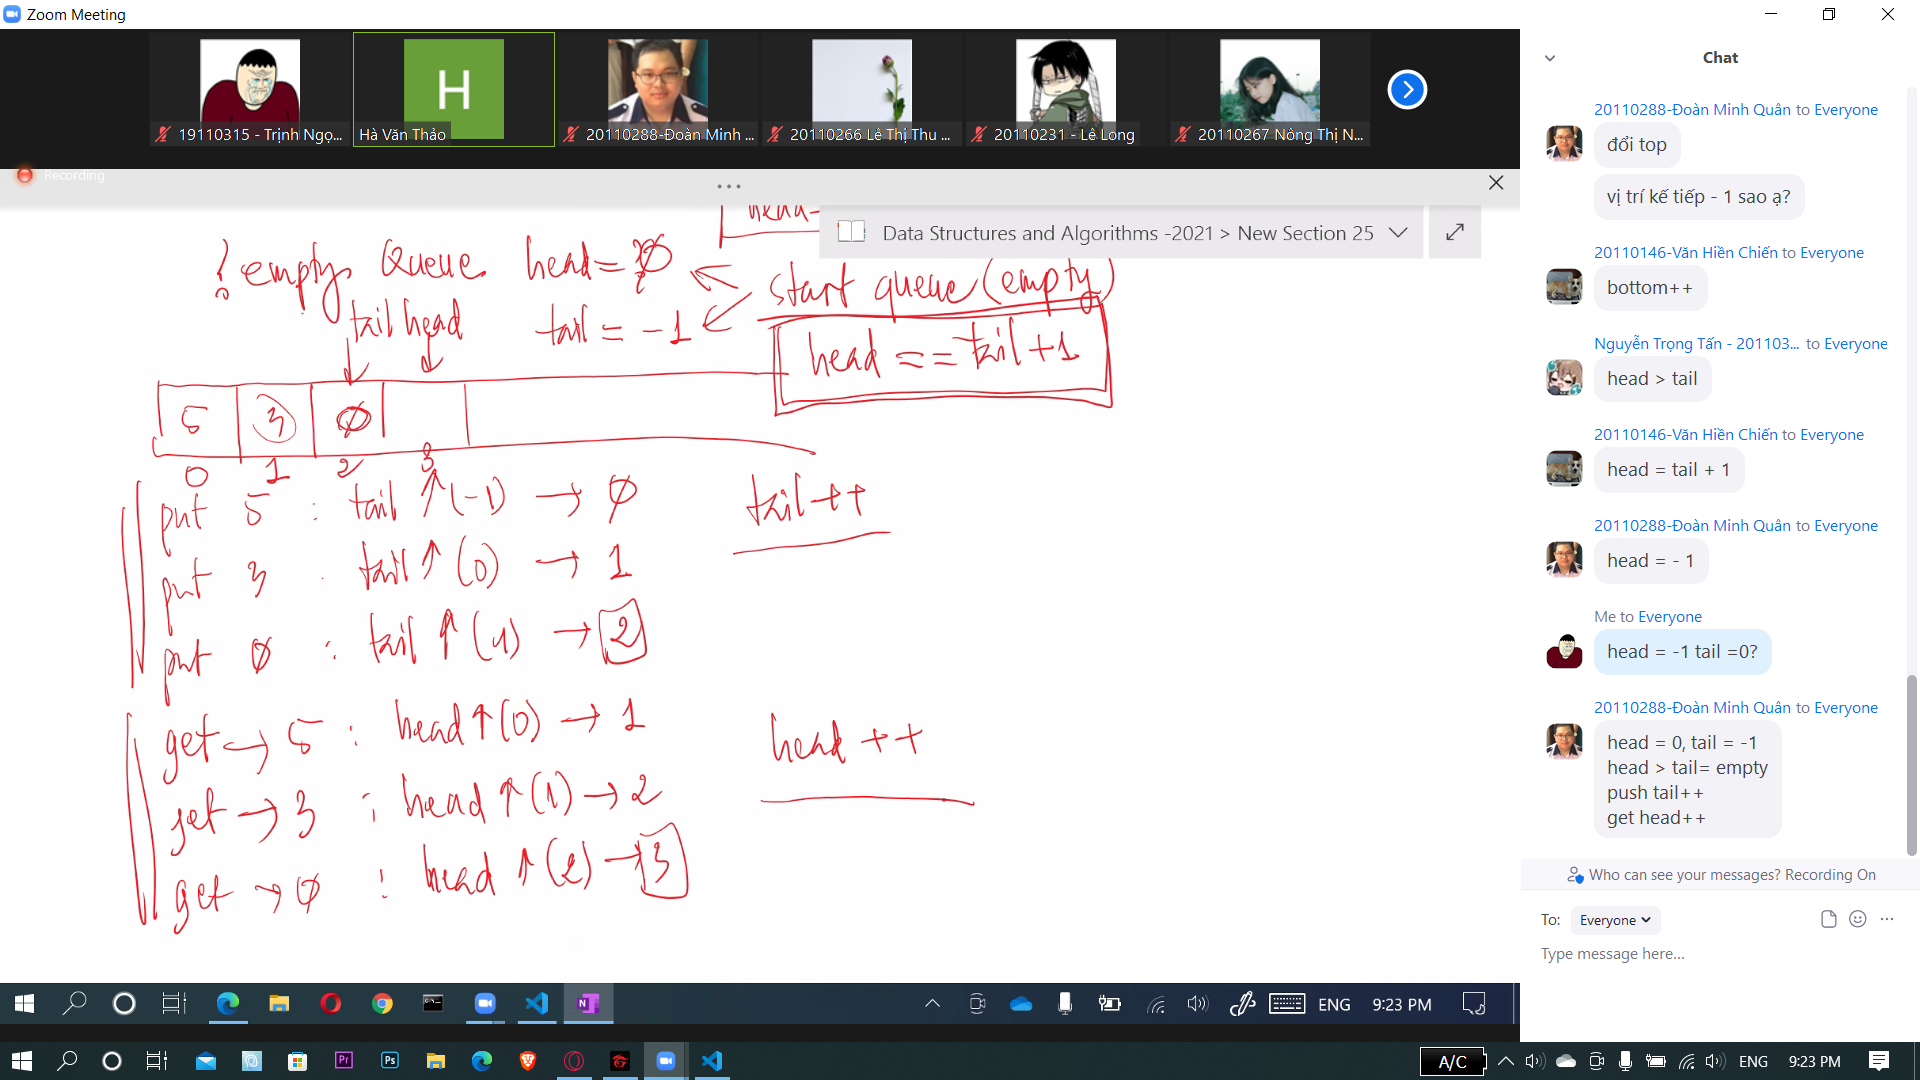 Zoom Meeting
19110315 - Trịnh Ngọ...
H
Hà Văn Thảo
20110288-Đoàn Minh ...
20110266 Lê Thị Thu ...
20110231 - Lê Long
20110267 Nông Thị N...
Recording
head-
Data Structures and Algorithms -2021 > New Section 25
? empty Queue head = Ø
start queue (empty)
tail head tail = -1
head == tail + 1
5 3 Ø
0 1 2 3
put 5 : tail ↑ (-1) → Ø
tail ++
put 3 . tail ↑ (0) → 1
put Ø : tail ↑ (1) → 2
get → 5 : head ↑ (0) → 1
head ++
get → 3 : head ↑ (1) → 2
get → Ø : head ↑ (2) → 3
ENG 9:23 PM
Chat
20110288-Đoàn Minh Quân to Everyone
đổi top
vị trí kế tiếp - 1 sao ạ?
20110146-Văn Hiền Chiến to Everyone
bottom++
Nguyễn Trọng Tấn - 201103... to Everyone
head > tail
20110146-Văn Hiền Chiến to Everyone
head = tail + 1
20110288-Đoàn Minh Quân to Everyone
head = - 1
Me to Everyone
head = -1 tail =0?
20110288-Đoàn Minh Quân to Everyone
head = 0, tail = -1
head > tail= empty
push tail++
get head++
Who can see your messages? Recording On
To: Everyone
Type message here...
Pr
Ps
A/C
ENG 9:23 PM